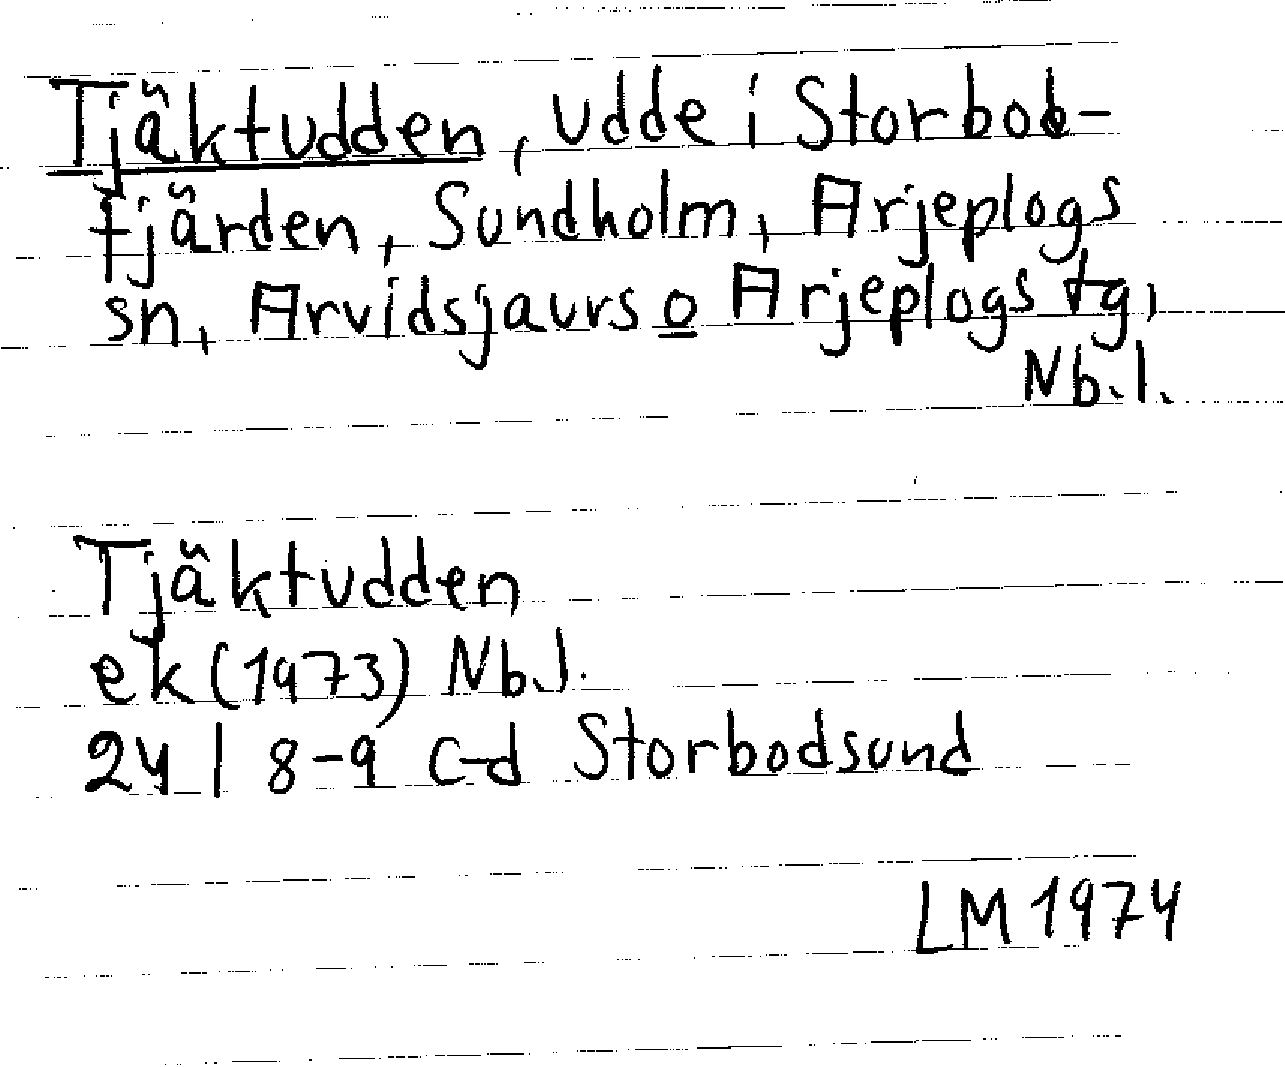 Tjäktudden, udde i Storbod-
fjärden, Sundholm, Arjeplogs
sn, Arvidsjaurs o Arjeplogs tg,
Nb.l.
Tjäktudden
ek (1973) Nb.l.
24 I 8-9 c-d Storbodsund
LM 1974